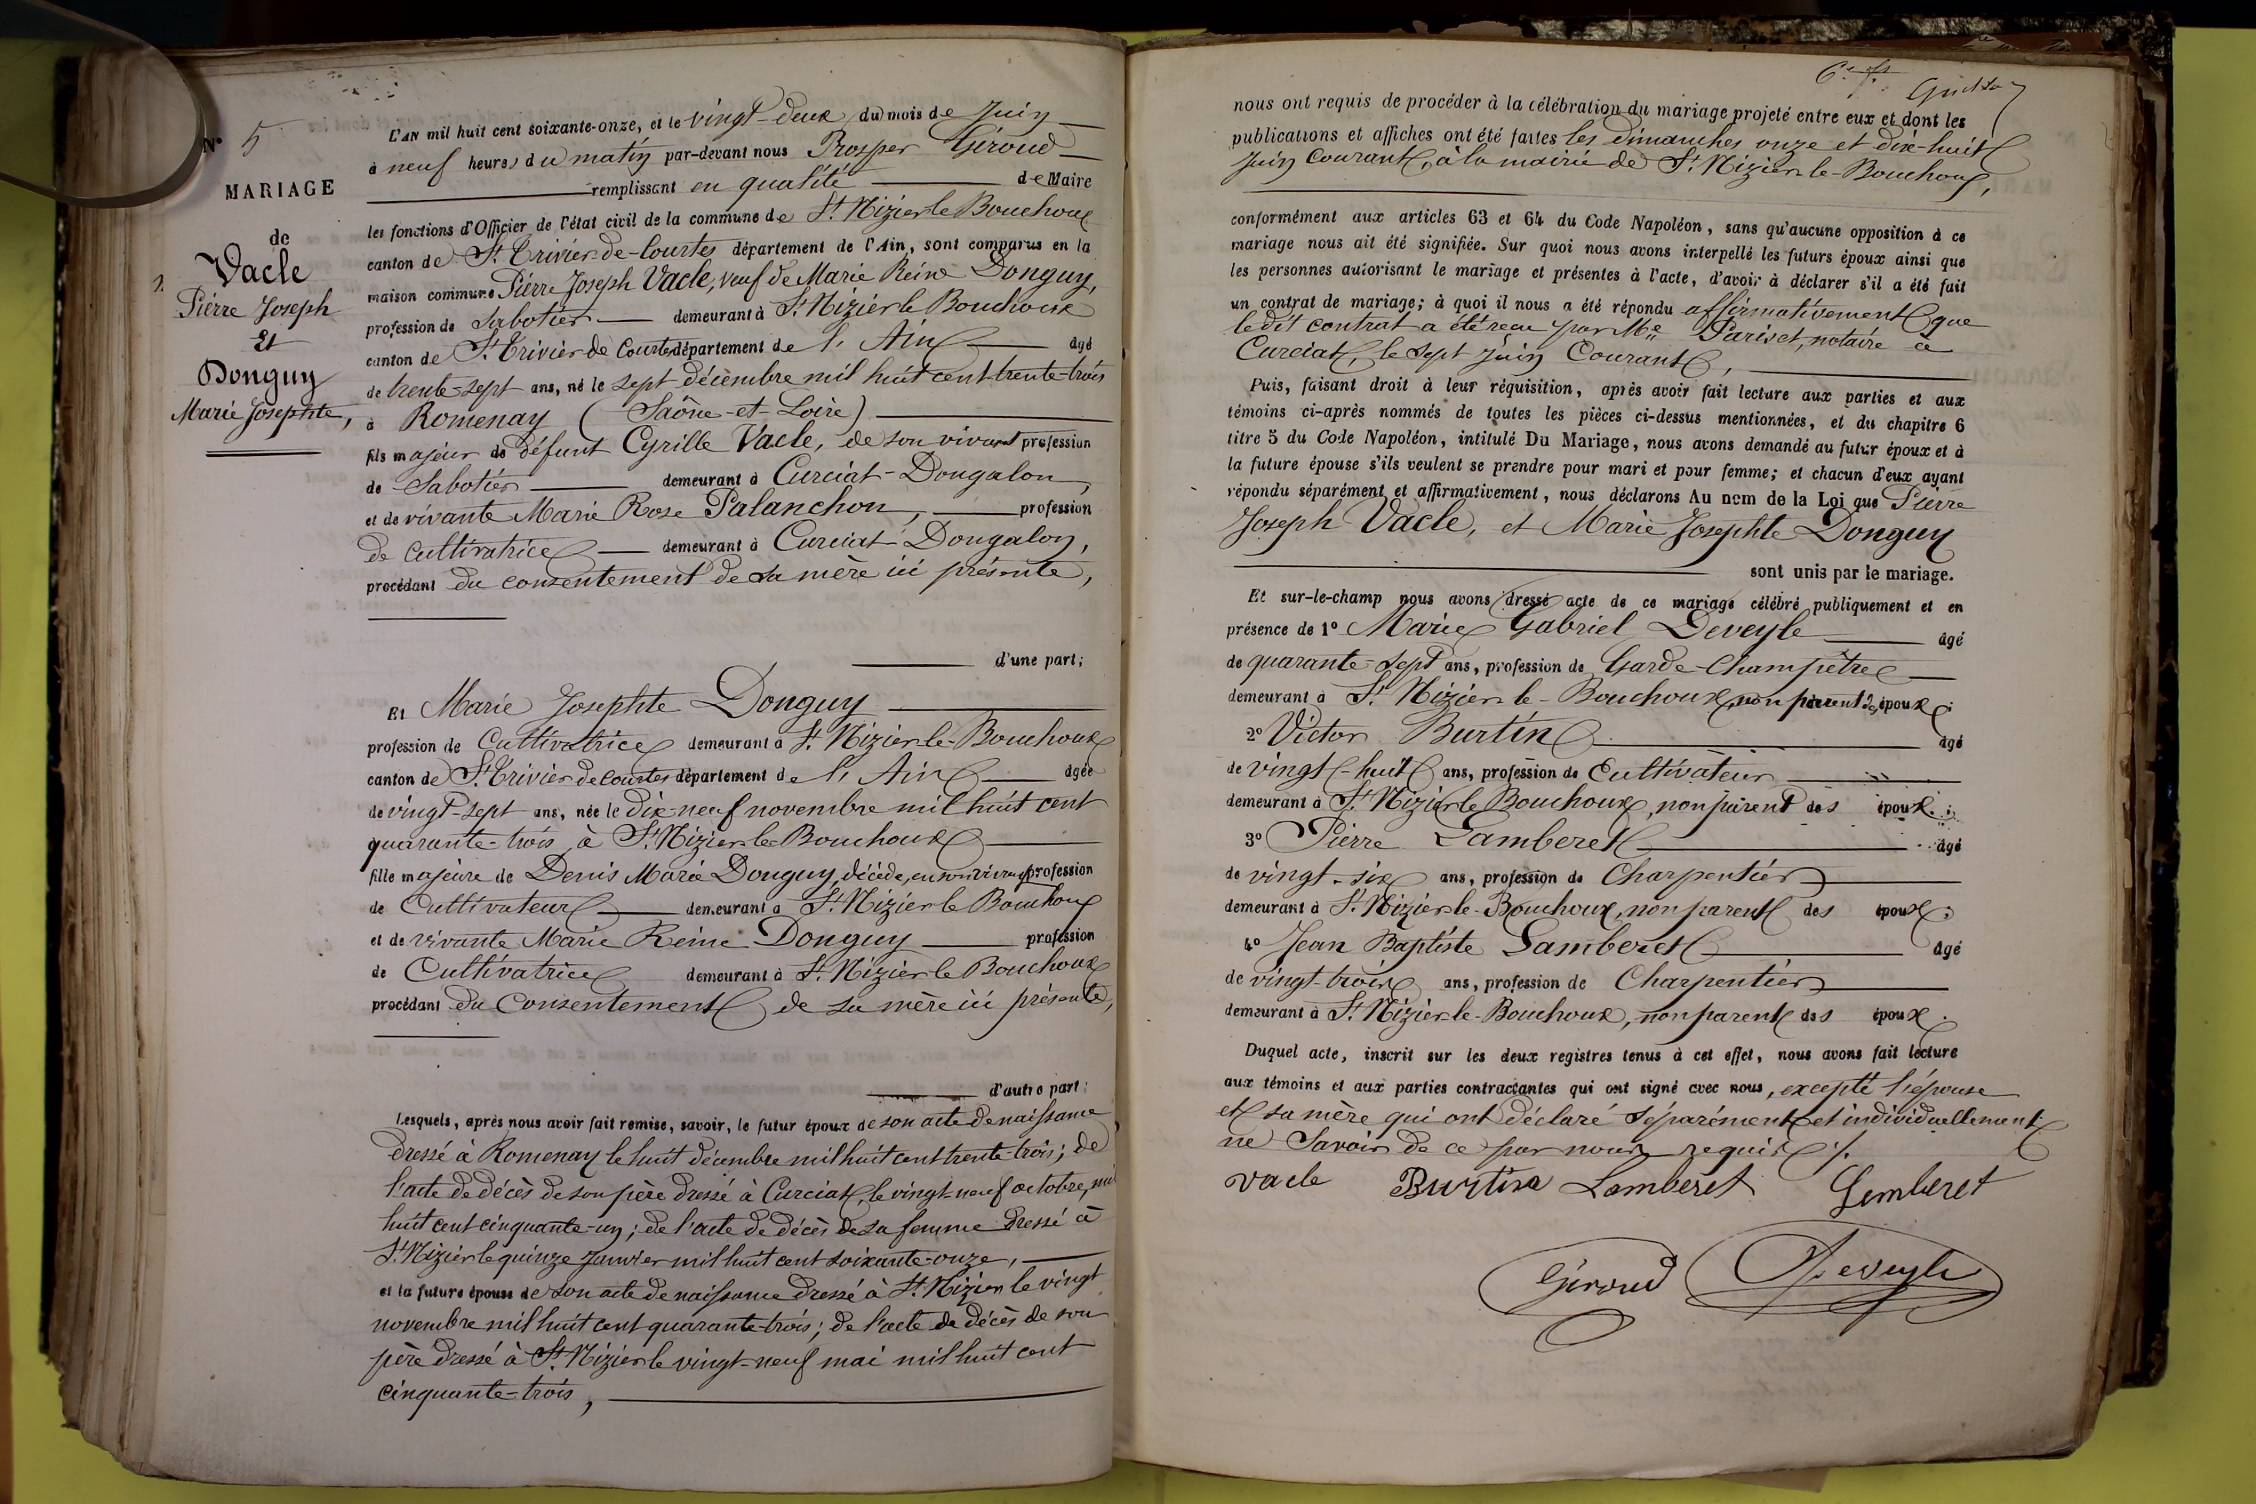 N° 5
MARIAGE
de
Vacle
Pierre Joseph
Et
Donguy
Marie Josephte,
L'AN mil huit cent soixante-onze, et le vingt-deux du mois de Juin
à neuf heures du matin par-devant nous Prosper Giroud
remplissant en qualité de Maire
les fonctions d'Officier de l'état civil de la commune de St. Nizier le Bouchoux
canton de St. Trivier-de-Courtes département de l'Ain, sont comparus en la
maison commune Pierre Joseph Vacle, veuf de Marie Reine Donguy,
profession de Sabotier demeurant à St. Nizier le Bouchoux
canton de St. Trivier de Courtes département de l'Ain âgé
de trente-sept ans, né le sept décembre mil huit cent trente-trois
à Romenay (Saône-et-Loire)
fils majeur de défunt Cyrille Vacle, de son vivant profession
de Sabotier demeurant à Curciat-Dongalon,
et de vivante Marie Rose Palanchon, profession
de Cultivatrice demeurant à Curciat Dongalon,
procédant du consentement de sa mère ici présente,
d'une part;
Et Marie Josephte Donguy
profession de Cultivatrice demeurant à St. Nizier-le-Bouchoux
canton de St. Trivier de Courtes département de l'Ain âgée
de vingt-sept ans, née le dix-neuf novembre mil huit cent
quarante-trois, à St. Nizier-le-Bouchoux
fille majeure de Denis Marie Donguy, décédé, en son vivant profession
de Cultivateur demeurant à St. Nizier le Bouchoux
et de vivante Marie Reine Donguy profession
de Cultivatrice demeurant à St. Nizier le Bouchoux
procédant du Consentement de sa mère ici présente,
d'autre part;
Lesquels, après nous avoir fait remise, savoir, le futur époux de son acte de naissance
dressé à Romenay le huit décembre mil huit cent trente-trois; de
l'acte de décès de son père dressé à Curciat, le vingt-neuf octobre, mil
huit cent cinquante-un; de l'acte de décès de sa femme dressé à
St. Nizier le quinze Janvier mil huit cent soixante-onze,
et la future épouse de son acte de naissance dressé à St. Nizier le vingt
novembre mil huit cent quarante-trois; de l'acte de décès de son
père dressé à St. Nizier le vingt-neuf mai mil huit cent
cinquante-trois,
nous ont requis de procéder à la célébration du mariage projeté entre eux et dont les
publications et affiches ont été faites les dimanches onze et dix-huit
Juin Courant, à la mairie de St. Nizier-le-Bouchoux,
conformément aux articles 63 et 64 du Code Napoléon, sans qu'aucune opposition à ce
mariage nous ait été signifiée. Sur quoi nous avons interpellé les futurs époux ainsi que
les personnes autorisant le mariage et présentes à l'acte, d'avoir à déclarer s'il a été fait
un contrat de mariage; à quoi il nous a été répondu affirmativement que
le dit contrat a été reçu par Me. Pariset, notaire à
Curciat, le sept Juin Courant,
Puis, faisant droit à leur réquisition, après avoir fait lecture aux parties et aux
témoins ci-après nommés de toutes les pièces ci-dessus mentionnées, et du chapitre 6
titre 5 du Code Napoléon, intitulé Du Mariage, nous avons demandé au futur époux et à
la future épouse s'ils veulent se prendre pour mari et pour femme; et chacun d'eux ayant
répondu séparément et affirmativement, nous déclarons Au nom de la Loi que Pierre
Joseph Vacle, et Marie Josephte Donguy
sont unis par le mariage.
Et sur-le-champ nous avons dressé acte de ce mariage célébré publiquement et en
présence de 1° Marie Gabriel Deveyle âgé
de quarante-sept ans, profession de Garde-Champêtre
demeurant à St. Nizier le-Bouchoux, non parent des époux;
2° Victor Burtin âgé
de vingt-huit ans, profession de Cultivateur
demeurant à St. Nizier le Bouchoux, non parent des époux;
3° Pierre Lamberet âgé
de vingt-six ans, profession de Charpentier
demeurant à St. Nizier-le-Bouchoux, non parent des époux;
4° Jean Baptiste Lamberet âgé
de vingt-trois ans, profession de Charpentier
demeurant à St. Nizier-le-Bouchoux, non parent des époux.
Duquel acte, inscrit sur les deux registres tenus à cet effet, nous avons fait lecture
aux témoins et aux parties contractantes qui ont signé avec nous, excepté l'épouse
et sa mère qui ont déclaré séparément et individuellement
ne Savoir de ce par nous requis ./.
vacle Burtin Lamberet Lemberet
Giroud Deveyle